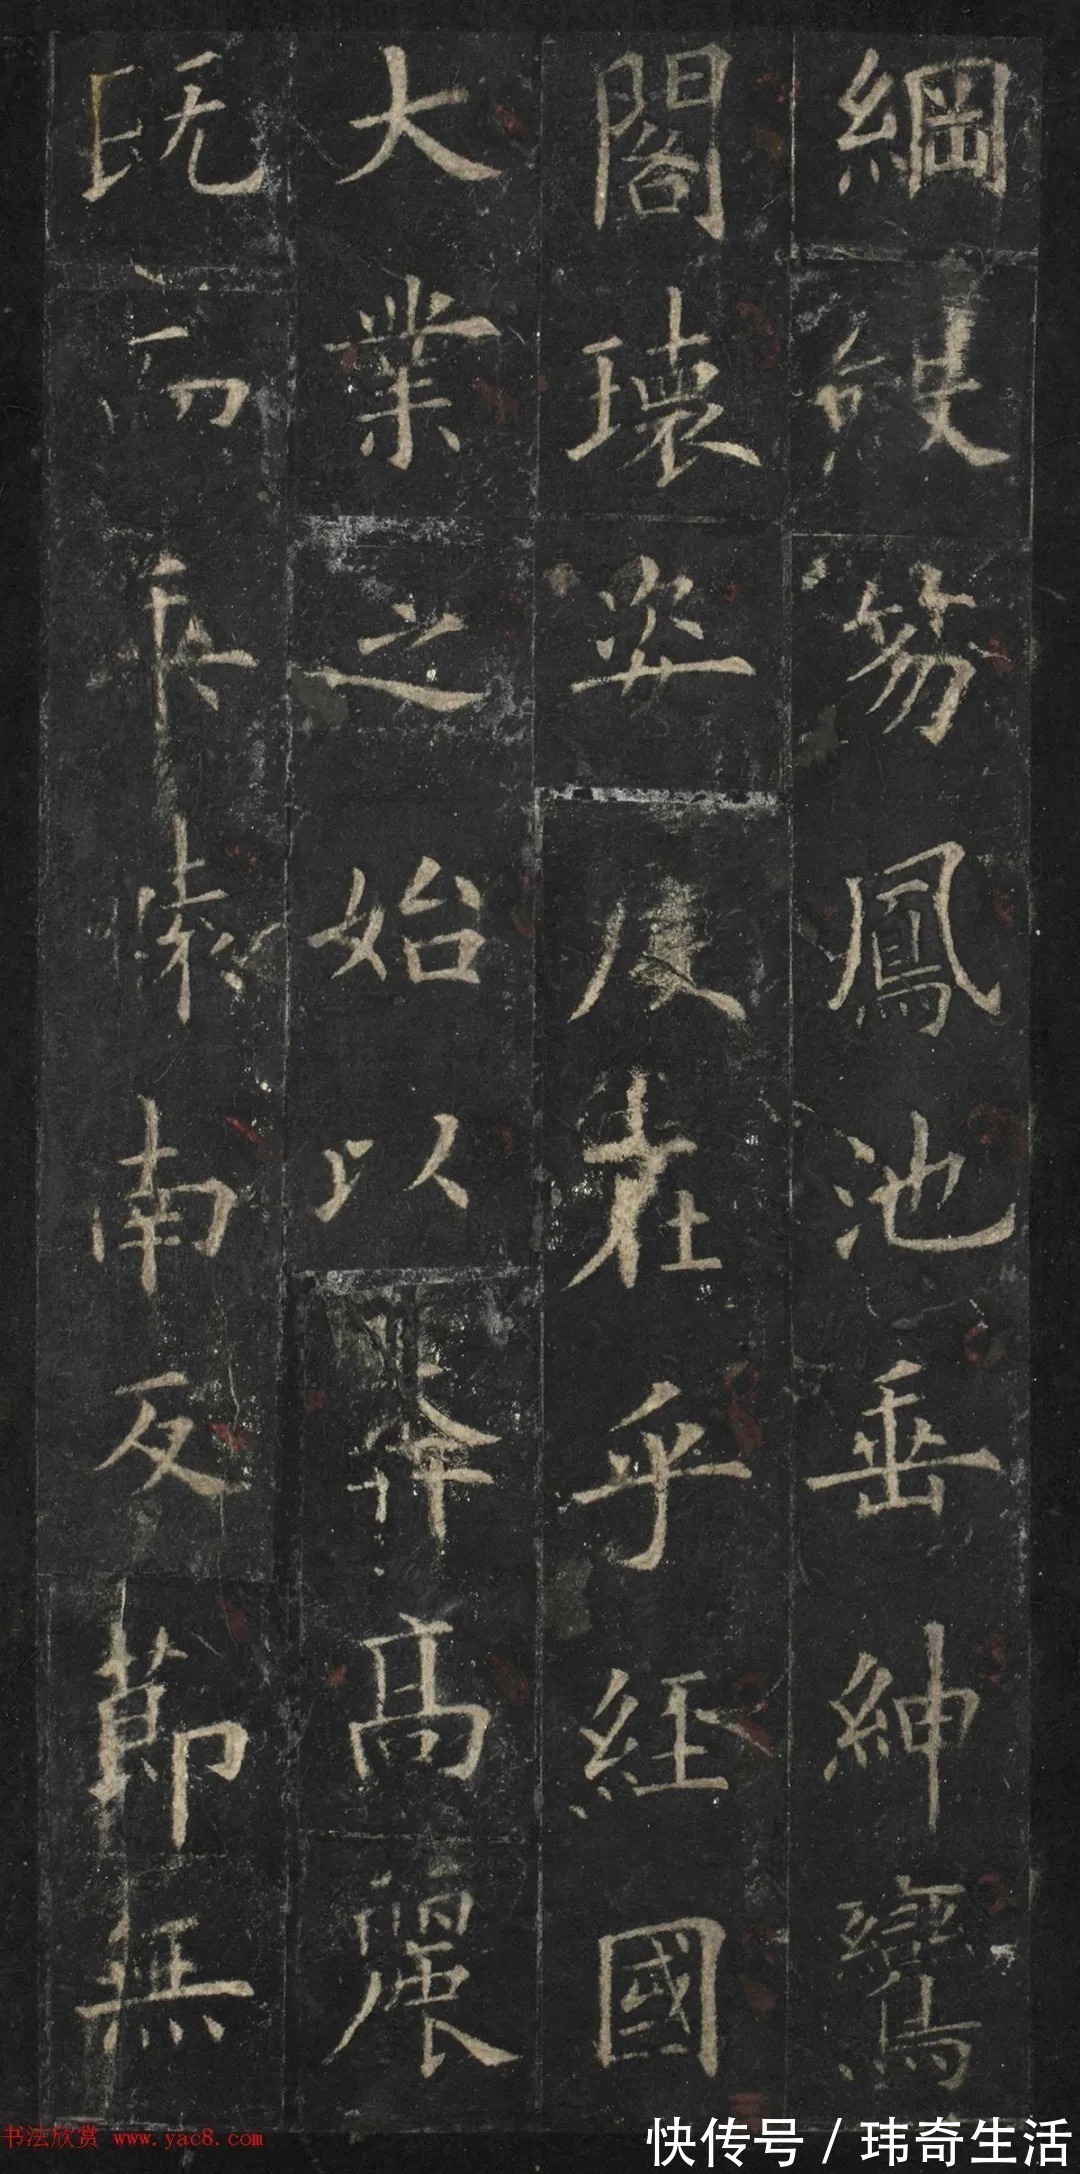 綱笏鳳池垂紳鸞
閣瓌姿度在乎經國
大業之始以高麗
既南反節無
书法欣赏 www.yac8.com
快传号 / 玮奇生活